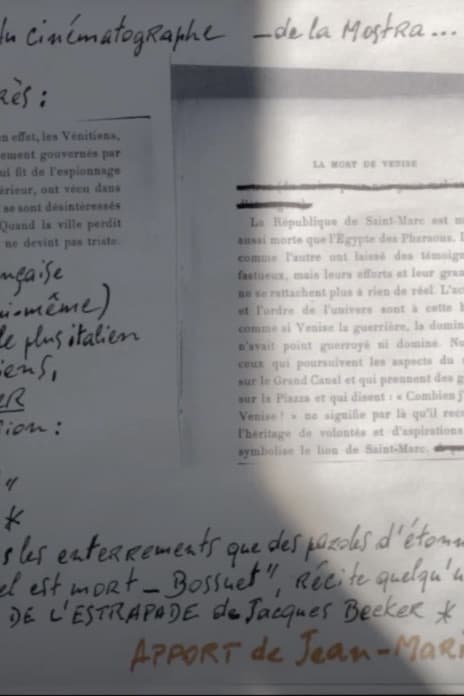 du cinématographe — de la Mostra...
rès :
en effet, les Vénitiens,
ement gouvernés par
ui fit de l'espionnage
érieur, ont vécu dans
se sont désintéressés
Quand la ville perdit
ne devint pas triste.
nçaise
ni-même)
le plus italien
iens,
ER
sion :
"
*
LA MORT DE VENISE
La République de Saint-Marc est m
aussi morte que l'Egypte des Pharaons. L
comme l'autre ont laissé des témoig
fastueux, mais leurs efforts et leur gran
ne se rattachent plus à rien de réel. L'ac
et l'ordre de l'univers sont à cette l
comme si Venise la guerrière, la domin
n'avait point guerroyé ni dominé. No
ceux qui poursuivent les aspects du
sur le Grand Canal et qui prennent des g
sur la Piazza et qui disent : « Combien j'
Venise ! » ne signifie par là qu'il rec
l'héritage de volontés et d'aspirations
symbolise le lion de Saint-Marc.
s les enterrements que des paroles d'étonn
el est mort — Bossuet", récite quelqu'u
DE L'ESTRAPADE de Jacques Becker *
APPORT de Jean-Mari